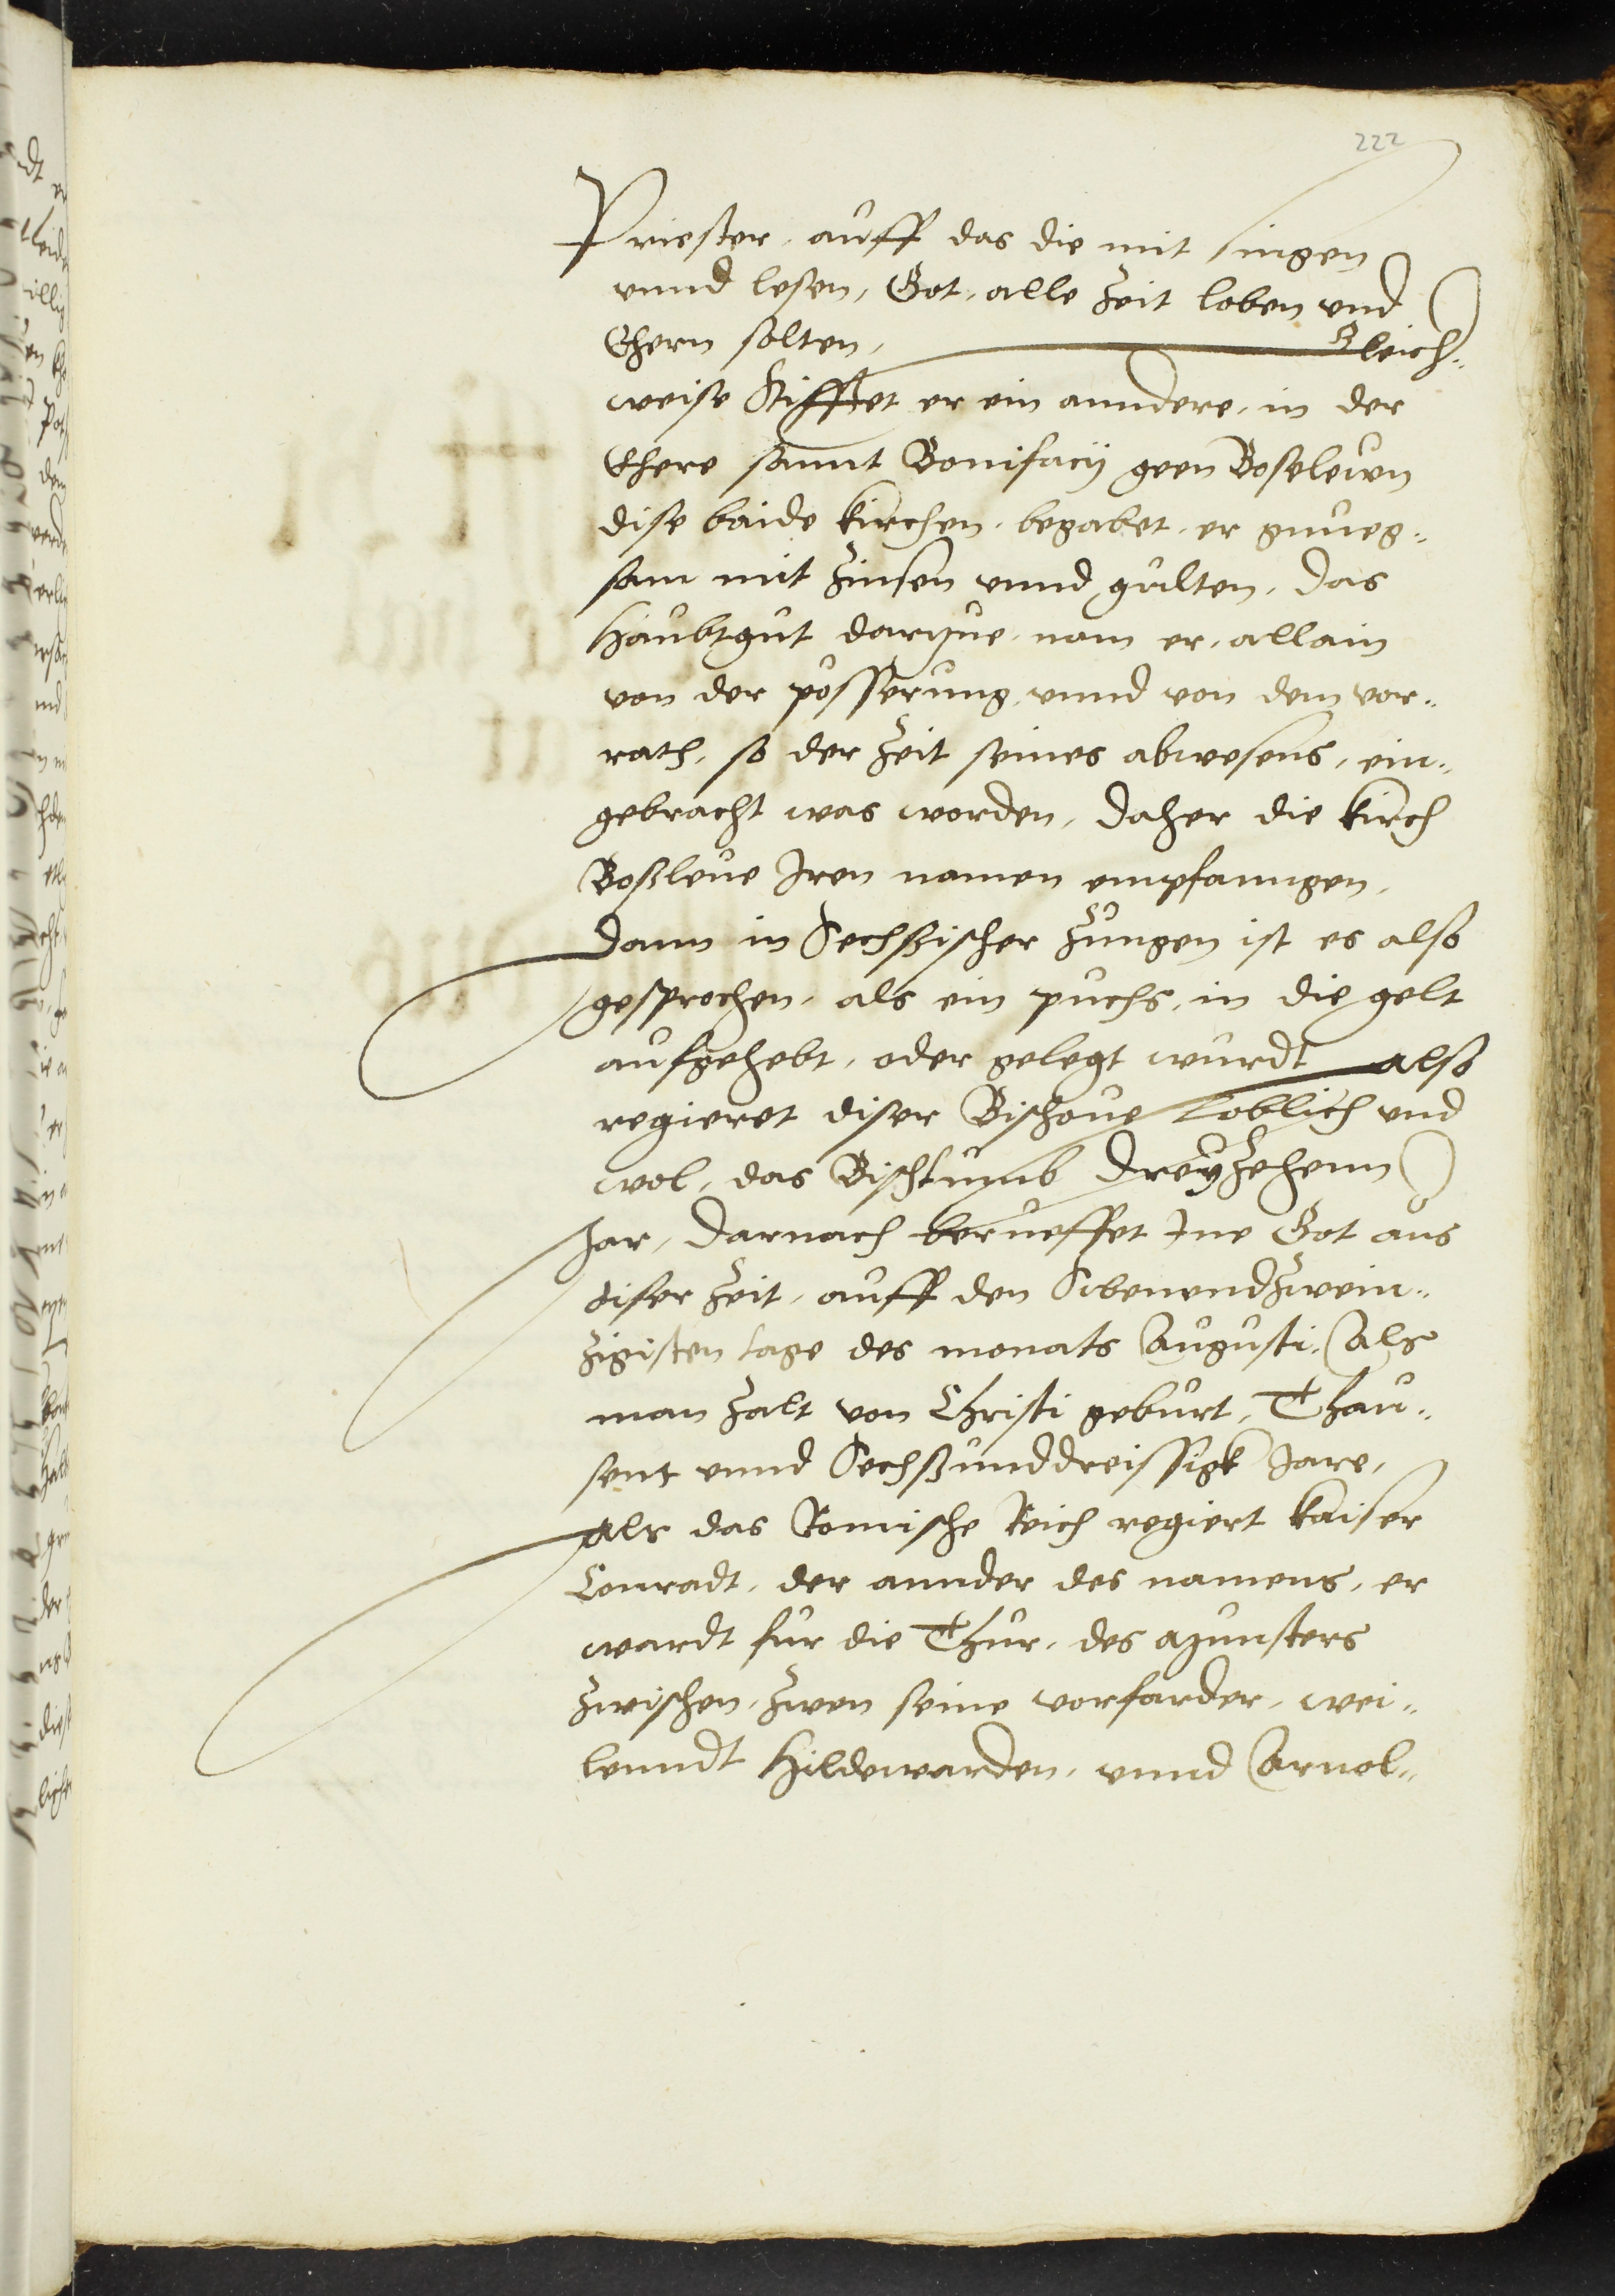 222
Priester, auff das die mit singen
vnnd lesen, Got, alle Zeit loben vnd
Ehern solten, Gleich„
weise Stifftet er ein anndere, in der
Ehere sannt Bonifacij geen Boseleuen
dise baide kirchen, begabet, er gnueg„
sam mit Zinsen vnnd gulten, das
Haubtgut darzue, nam er, allain
von der posserung, vnnd von dem vor„
rath, so der Zeit seines abwesens, ein„
gebracht was worden, daher die kirch
Boßleue Iren namen empfanngen,
dann in Sechßischer Zungen ist es also
gesprochen, als ein puchs, in die gelt
aufgehebt, oder gelegt wurdt also
regieret diser Bischoue Loblich vnd
wol, das Bischtumb dreyzehenn
Jar, darnach berueffet Ine Got aus
diser Zeit, auff den Sibenvndzwein„
zigisten tage des monats Augusti, Als
man Zalt von Christi geburt, Thau„
sent vnnd Sechßunddreissigk Jare,
als das Romische Reich regiert kaiser
Conradt, der annder des namens, er
wardt fur die Thur, des munsters
Zwischen, Zwen seine vorfarder, wei„
lenndt Hildewarden, vnnd Arnol„